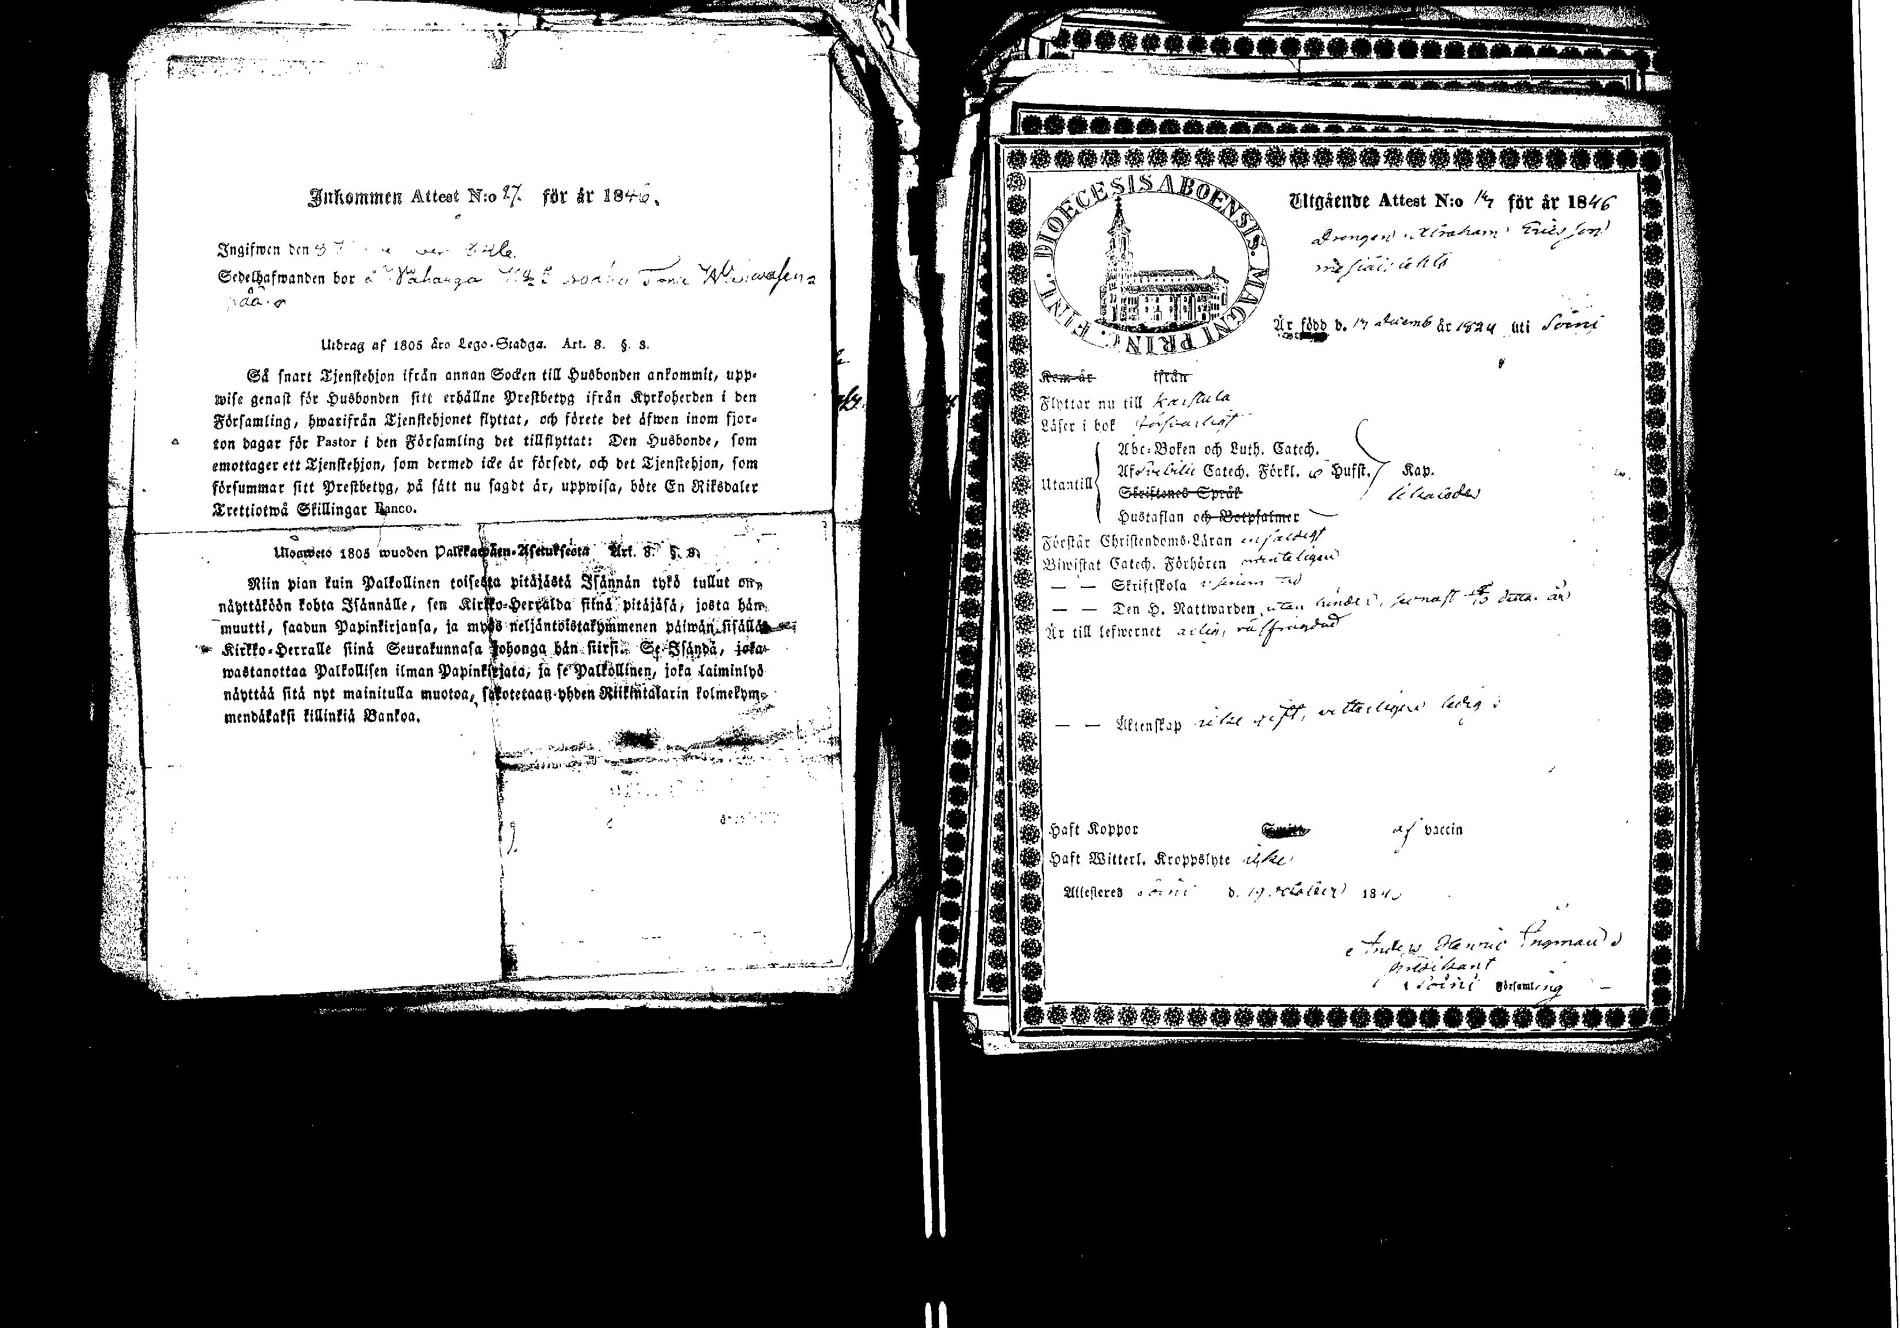 Inkommen Attest N:o 27. för år 1846.
Ingifwen den
Sedelhafwanden bor å Vahanga
Utdrag af 1805 års Lego-Stadga. Art. 8. §. 8.
Så snart Tjenstehjon ifrån annan Socken till Husbonden ankommit, upp-
wise genast för Husbonden sitt erhållne Prestbetyg ifrån Kyrkoherden i den
Församling, hwarifrån Tjenstehjonet flyttat, och förete det äfwen inom fjor-
ton dagar för Pastor i den Församling det tillflyttat: Den Husbonde, som
emottager ett Tjenstehjon, som dermed icke är försedt, och det Tjenstehjon, som
försummar sitt Prestbetyg, på sätt nu sagdt är, uppwisa, böte En Riksdaler
Trettiotwå Skillingar Banco.
Ulosweto 1805 wuoden Palkkawäen-Asetuksesta Art. 8. §. 8.
Niin pian kuin Palkollinen toisesta pitäjästä Isännän tykö tullut on,
näyttäköön kohta Isännälle, sen Kirkko-Herralda siinä pitäjäsä, josta hän
muutti, saadun Papinkirjansa, ja myös neljäntoistakymmenen päiwän sisällä
Kirkko-Herralle siinä Seurakunnasa johonga hän siirsi. Se Isändä, joka
wastanottaa Palkollisen ilman Papinkirjata, ja se Palkollinen, joka laiminlyö
näyttää sitä nyt mainitulla muotoa, sakotetaan yhden Riikintalarin kolmekym-
mendäkaksi killinkiä Bankoa.
DIOECESIS ABOENSIS. MAGNI PRINC. FINL.
Utgående Attest N:o 17 för år 1846
Drengen Abraham Ericsson
Är född d. 17 decemb år 1824 uti Soini
Kom år ifrån
Flyttar nu till Karstula
Läser i bok försvarligt
Utantill
Abc-Boken och Luth. Catech.
Af Svebilii Catech. Förkl. o Husst. Kap.
Skriftenes Språk
Hustaflan och Botpsalmer
Förstår Christendoms-Läran enfaldigt
Biwistat Catech. Förhören ordenteligen
— — Skriftskola
— — Den H. Nattwarden utan hinder, senast detta år
Är till lefwernet ärlig, välfrägdad
— — Äktenskap icke gift, vetterligen ledig
Haft Koppor af vaccin
Haft Witterl. Kroppslyte icke
Attesteras Soini d. 17 October 184
Anders Henric Ingman
Predikant
i Soini Församling